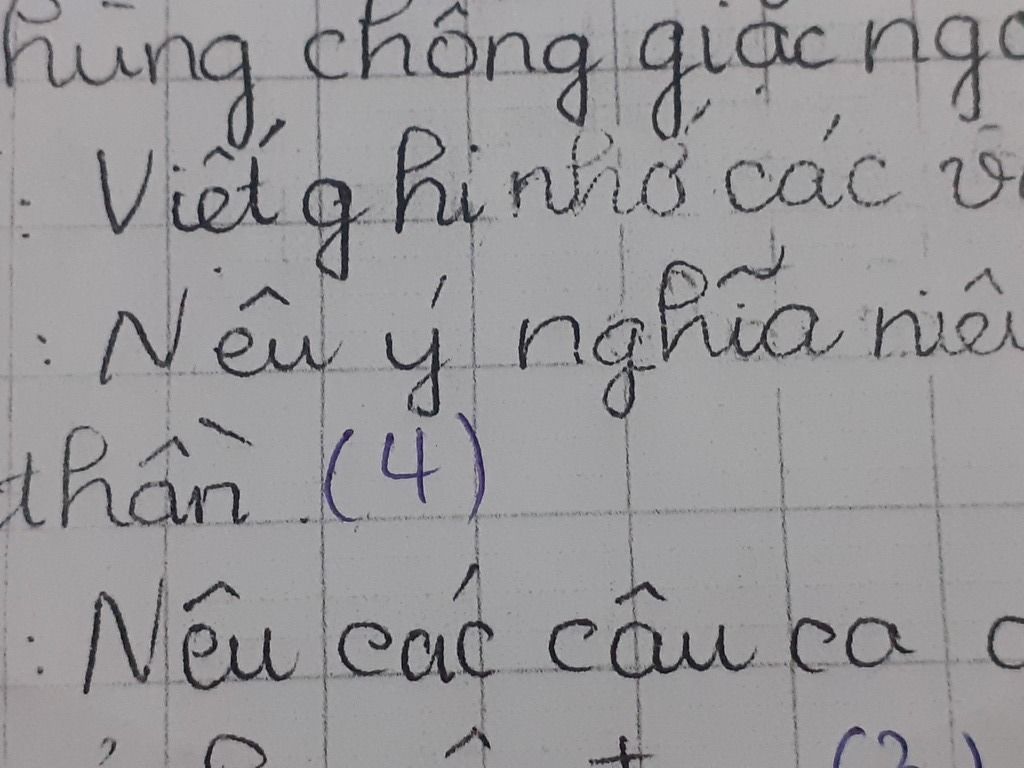 hùng chống giặc ngo
: Viết ghi nhớ các v
: Nêu ý nghĩa niê
thần. (4)
: Nêu các câu ca c